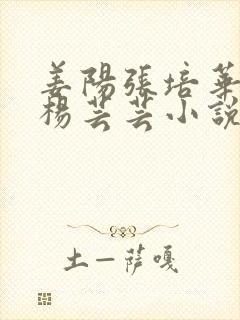 姜陽張培華
楊芸芸小說
土一薩嘎